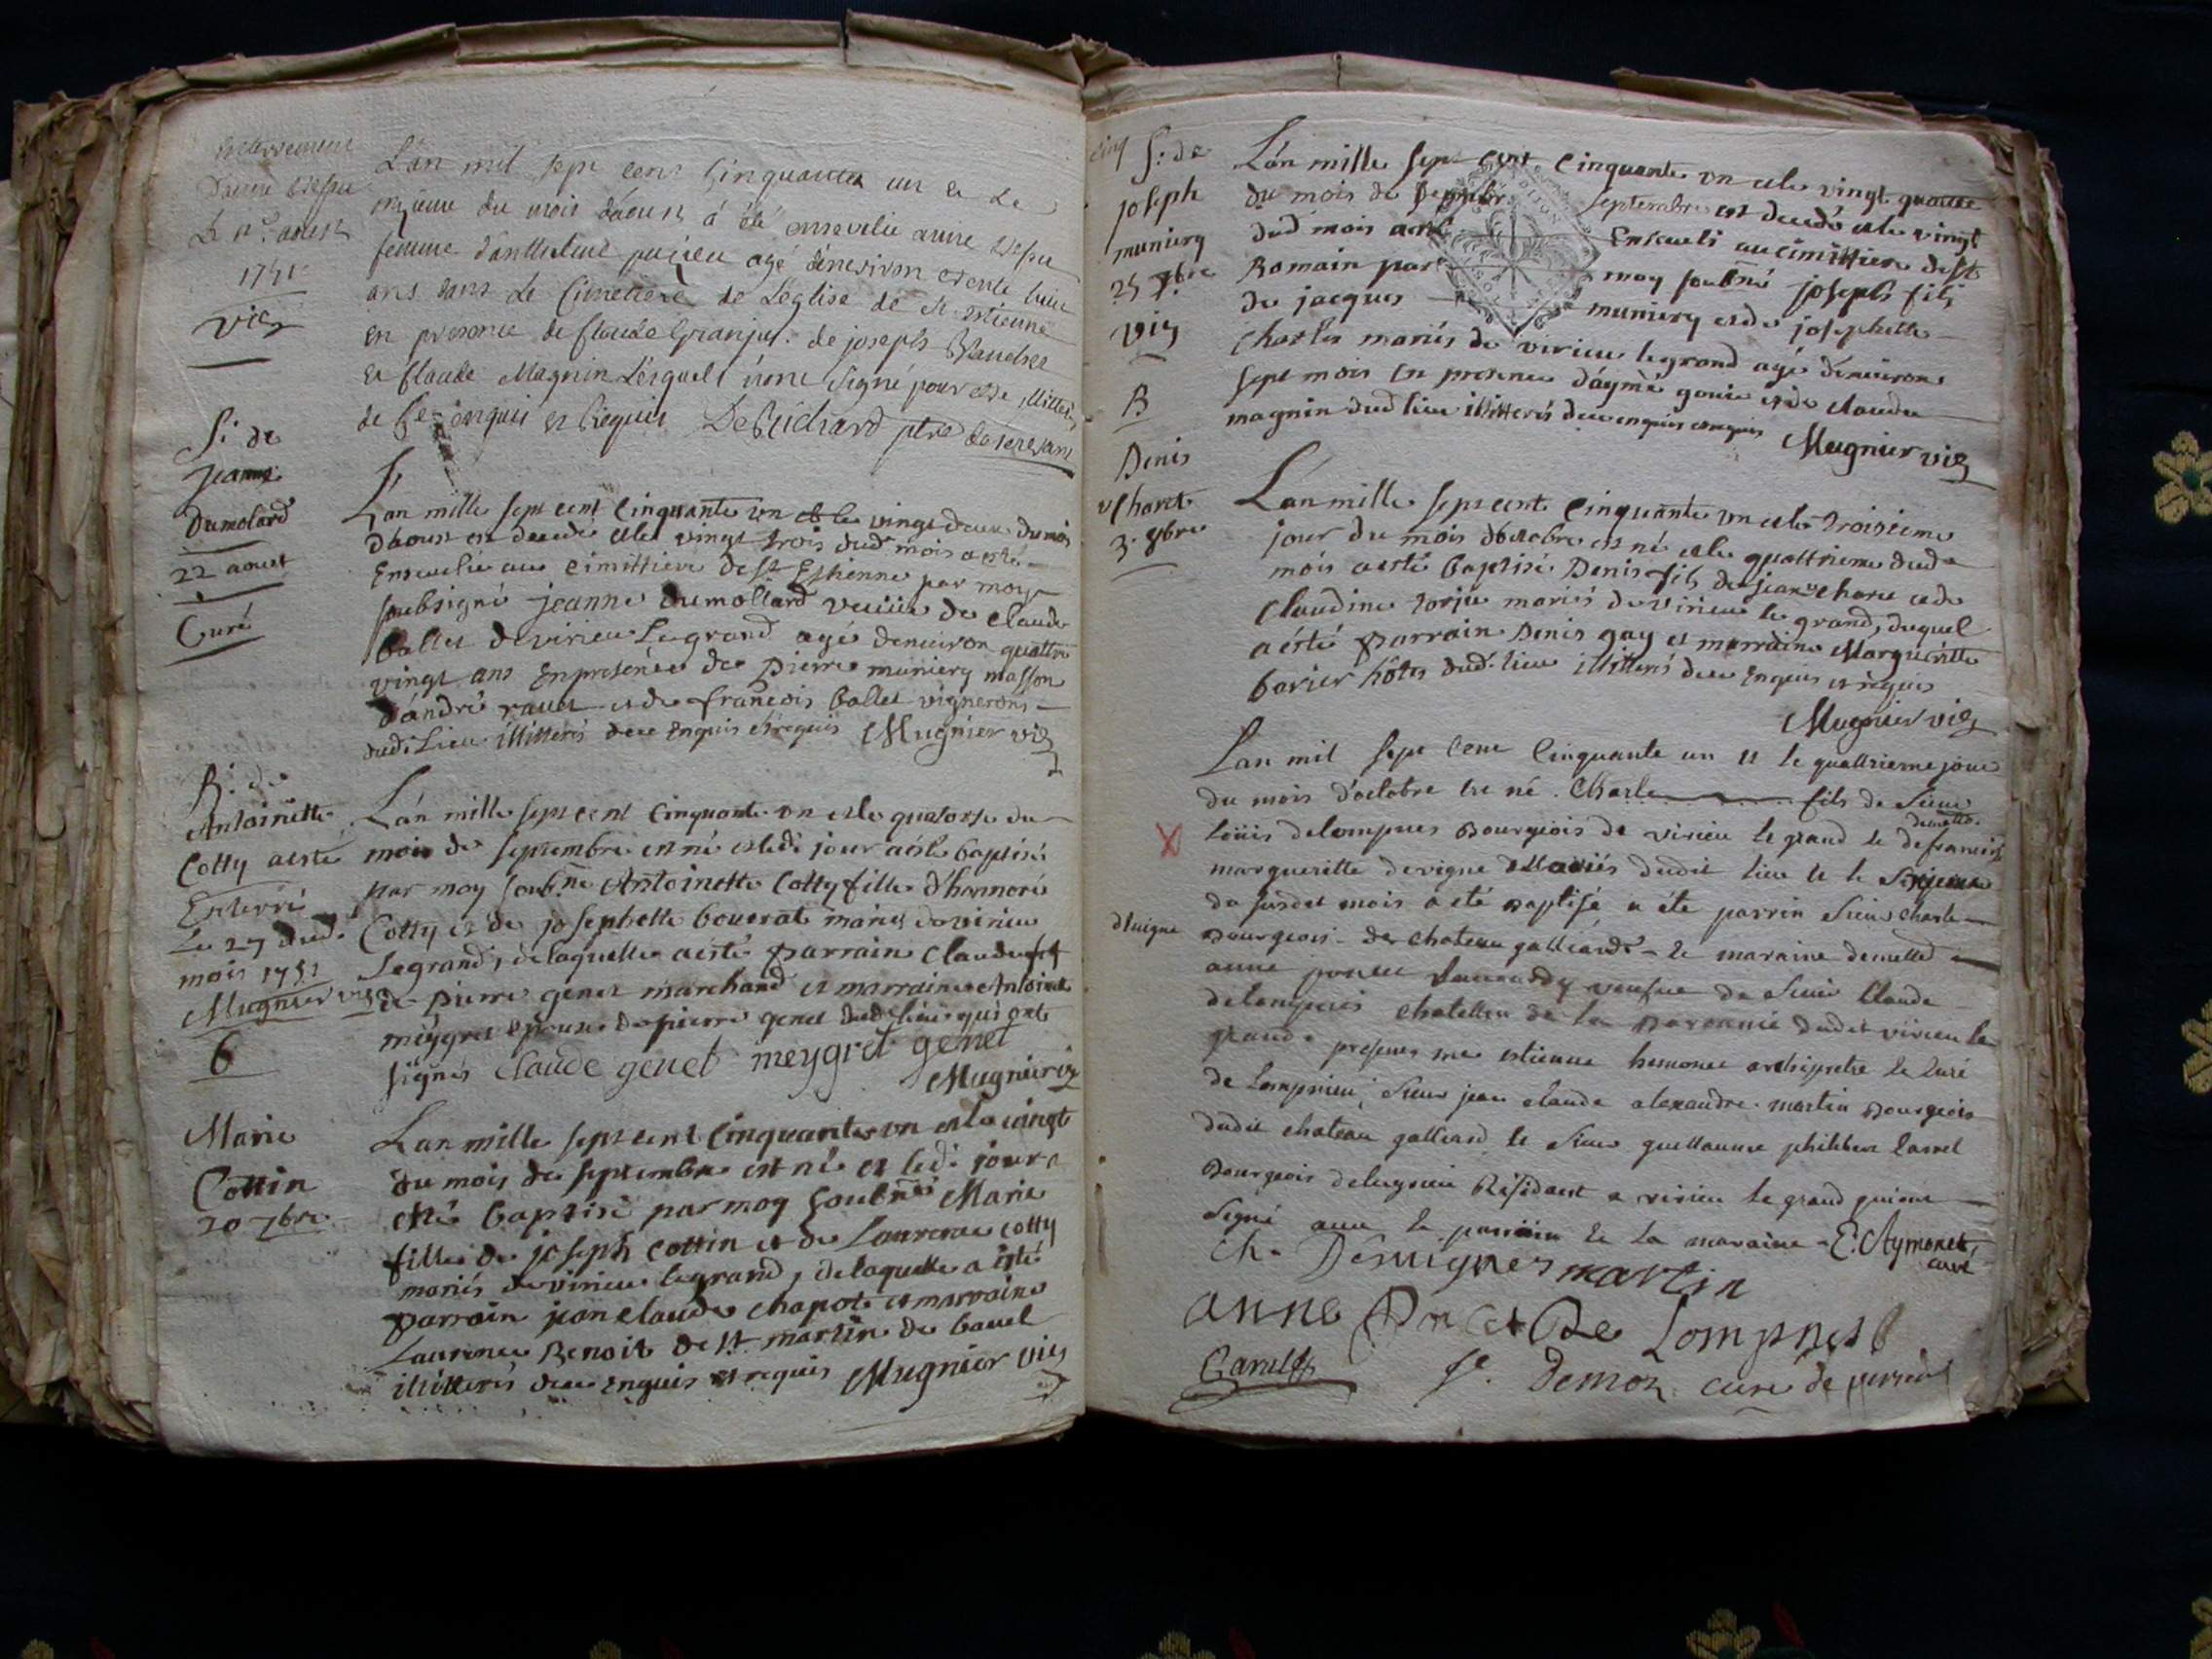 Enterrement
Le 11e aoust
1751
vic
L'an mil sept cens cinquante un et Le
onzieme du mois d'aoust á été ensevelie anne
femme d'anthelme pugieu agé denviron trente huit
ans dans Le Cimetiere de Léglise de st etienne
en presence de Claude Granjut. de joseph
et Claude Magnin Lesquels n'ont Signé pour estre illiterés
de ce enquis et Requis DeBuchard ptre
S: de
Jeanne
Dumolard
22 aoust
Curé
L'an mille sept cent Cinquante un et le vingt deux du mois
d'aoust est decedé et le vingt trois dud mois a esté
Enseuelie au Cimittiere de St Estienne par moy
soubsigné jeanne dumollard veuue de claude
ballet de virieu Legrand agé denuiron quattre
vingt ans En presence de Pierre muniery masson
d'andré rauet et de françois ballet vignerons
dud: Lieu illitterés de ce Enquis et requis Mugnier vic
B: de
Antoinette
Cotty a esté
Enterré
Le 27 dud:
mois 1751
Mugnier vic
6
L'an mille sept cent Cinquante un et le quatorse du
mois de septembre est né et ledi jour a esté baptisé
par moy soub.né Antoinette Cotty fille d'honnoré
Cotty et de josephette bouerat mariés de virieu
Legrand, de laquelle a esté parrain Claude fils
de Pierre genet marchand et marraine Antoinet
meygret Epouse de pierre genet dud: lieu qui ont
signés Claude genet meygret genet
Mugnier vic
Marie
Cottin
20 7bre
L'an mille sept cent Cinquante un et le vingt
du mois de septembre est né et ledi: jour a
esté baptisé par moy soubné Marie
fille de joseph Cottin et de Laurence Cotty
mariés de virieu legrand, de laquelle a esté
parrain jean claude chapot et marraine
Laurence Benoit de st martin de bauel
illitterés de ce enquis et requis Mugnier vic
S: de
joseph
muniery
25 7bre
vic
L'an mille sept cent Cinquante un et le vingt quattre
du mois de septembre est decedé et le vingt
dud mois a esté Enseueli au cimittiere de st
Romain par moy soubné joseph fils
de jacques muniery et de josephette
Charles mariés de virieu legrand agé denuiron
sept mois en presence d'aymé gonie et de claude
magnin dud lieu illitterés de ce enquis requis Mugnier vic
B
Denis
Charet
3: 8bre
L'an mille sept cent Cinquante un et le troisieme
jour du mois d'octobre est né et le quattrieme dud
mois a esté baptisé Denis fils de jean charet et de
Claudine mariés de virieu le grand, duquel
a ésté Parrain Denis gay et marraine Margueritte
barier hôtes dud: lieu illitterés de ce Enquis et réquis
Mugnier vic
Lan mil sept Cent Cinquante un et le quattrieme jour
du mois d'octobre est né. Charle fils de Sieur
Loüis delompnes Bourgeois de virieu le grand et de françoise
demlle
margueritte devigne Mariés dudit lieu et le Sixieme
du susdit mois a eté Baptisé a éte parrin Sieur Charle
dluigne
Bourgeois de Chateau galliard et maraine demelle
anne veufue de Sieur Claude
delompnes Chatellin de la Baronnie dudit virieu le
grand presens mre estienne hemonet archipretre et Curé
de Lompnieu, Sieur jean claude alexandre martin Bourgeois
dudit chateau galliard, et Sieur guillaume philibert Carrel
Bourgeois de Residant a virieu le grand qui ont
Signé avec le parrain et la maraine E. Aymonet,
curé
Ch. Desuignes martin
anne De Lompnes
demoz curé de